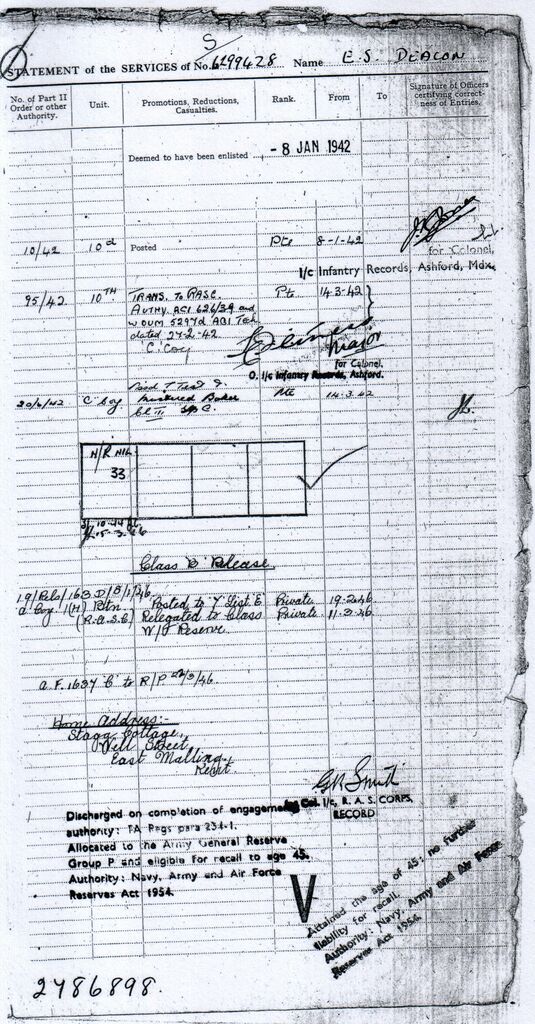 S/
STATEMENT of the SERVICES of No. 6299428 Name E.S. DEACON
No. of Part II Order or other Authority.
Unit.
Promotions, Reductions, Casualties.
Rank.
From
To
Signature of Officers certifying correctness of Entries.
Deemed to have been enlisted - 8 JAN 1942
10/42 10th Posted Pte 8-1-42
for Colonel,
I/c Infantry Records, Ashford, Mdx.
95/42 10TH TRANS. To RASC. Pte 14-3-42
AUTHY. ACI 626/39 and
dated 27-2-42
C. Coy
Major
for Colonel.
O. I/c Infantry Records, Ashford.
20/4/42 C Coy Mustered Baker Pte 14.3.42
Cl III
N/R NIL
33
Class "A" Release
19/Rels/163.D/8/1/46
a Coy. 1(H) Btn. Posted to Y List E. Private 19.2.46
(R.A.S.C) Relegated to Class Private 11.3.46
W/P Reserve.
Home Address:-
Stagg Cottage,
Mill Street,
East Malling,
Kent.
G.R. Smith
Col. I/c, R. A. S. CORPS,
RECORD
Discharged on completion of engagement
authority: TA Regs para 234-1.
Allocated to the Army General Reserve
Group P and eligible for recall to age 45.
Authority: Navy, Army and Air Force
Reserves Act 1954.
V
Attained the age of 45: no further
liability for recall.
Authority: Navy, Army and Air Force
Reserves Act 1954.
2786898.